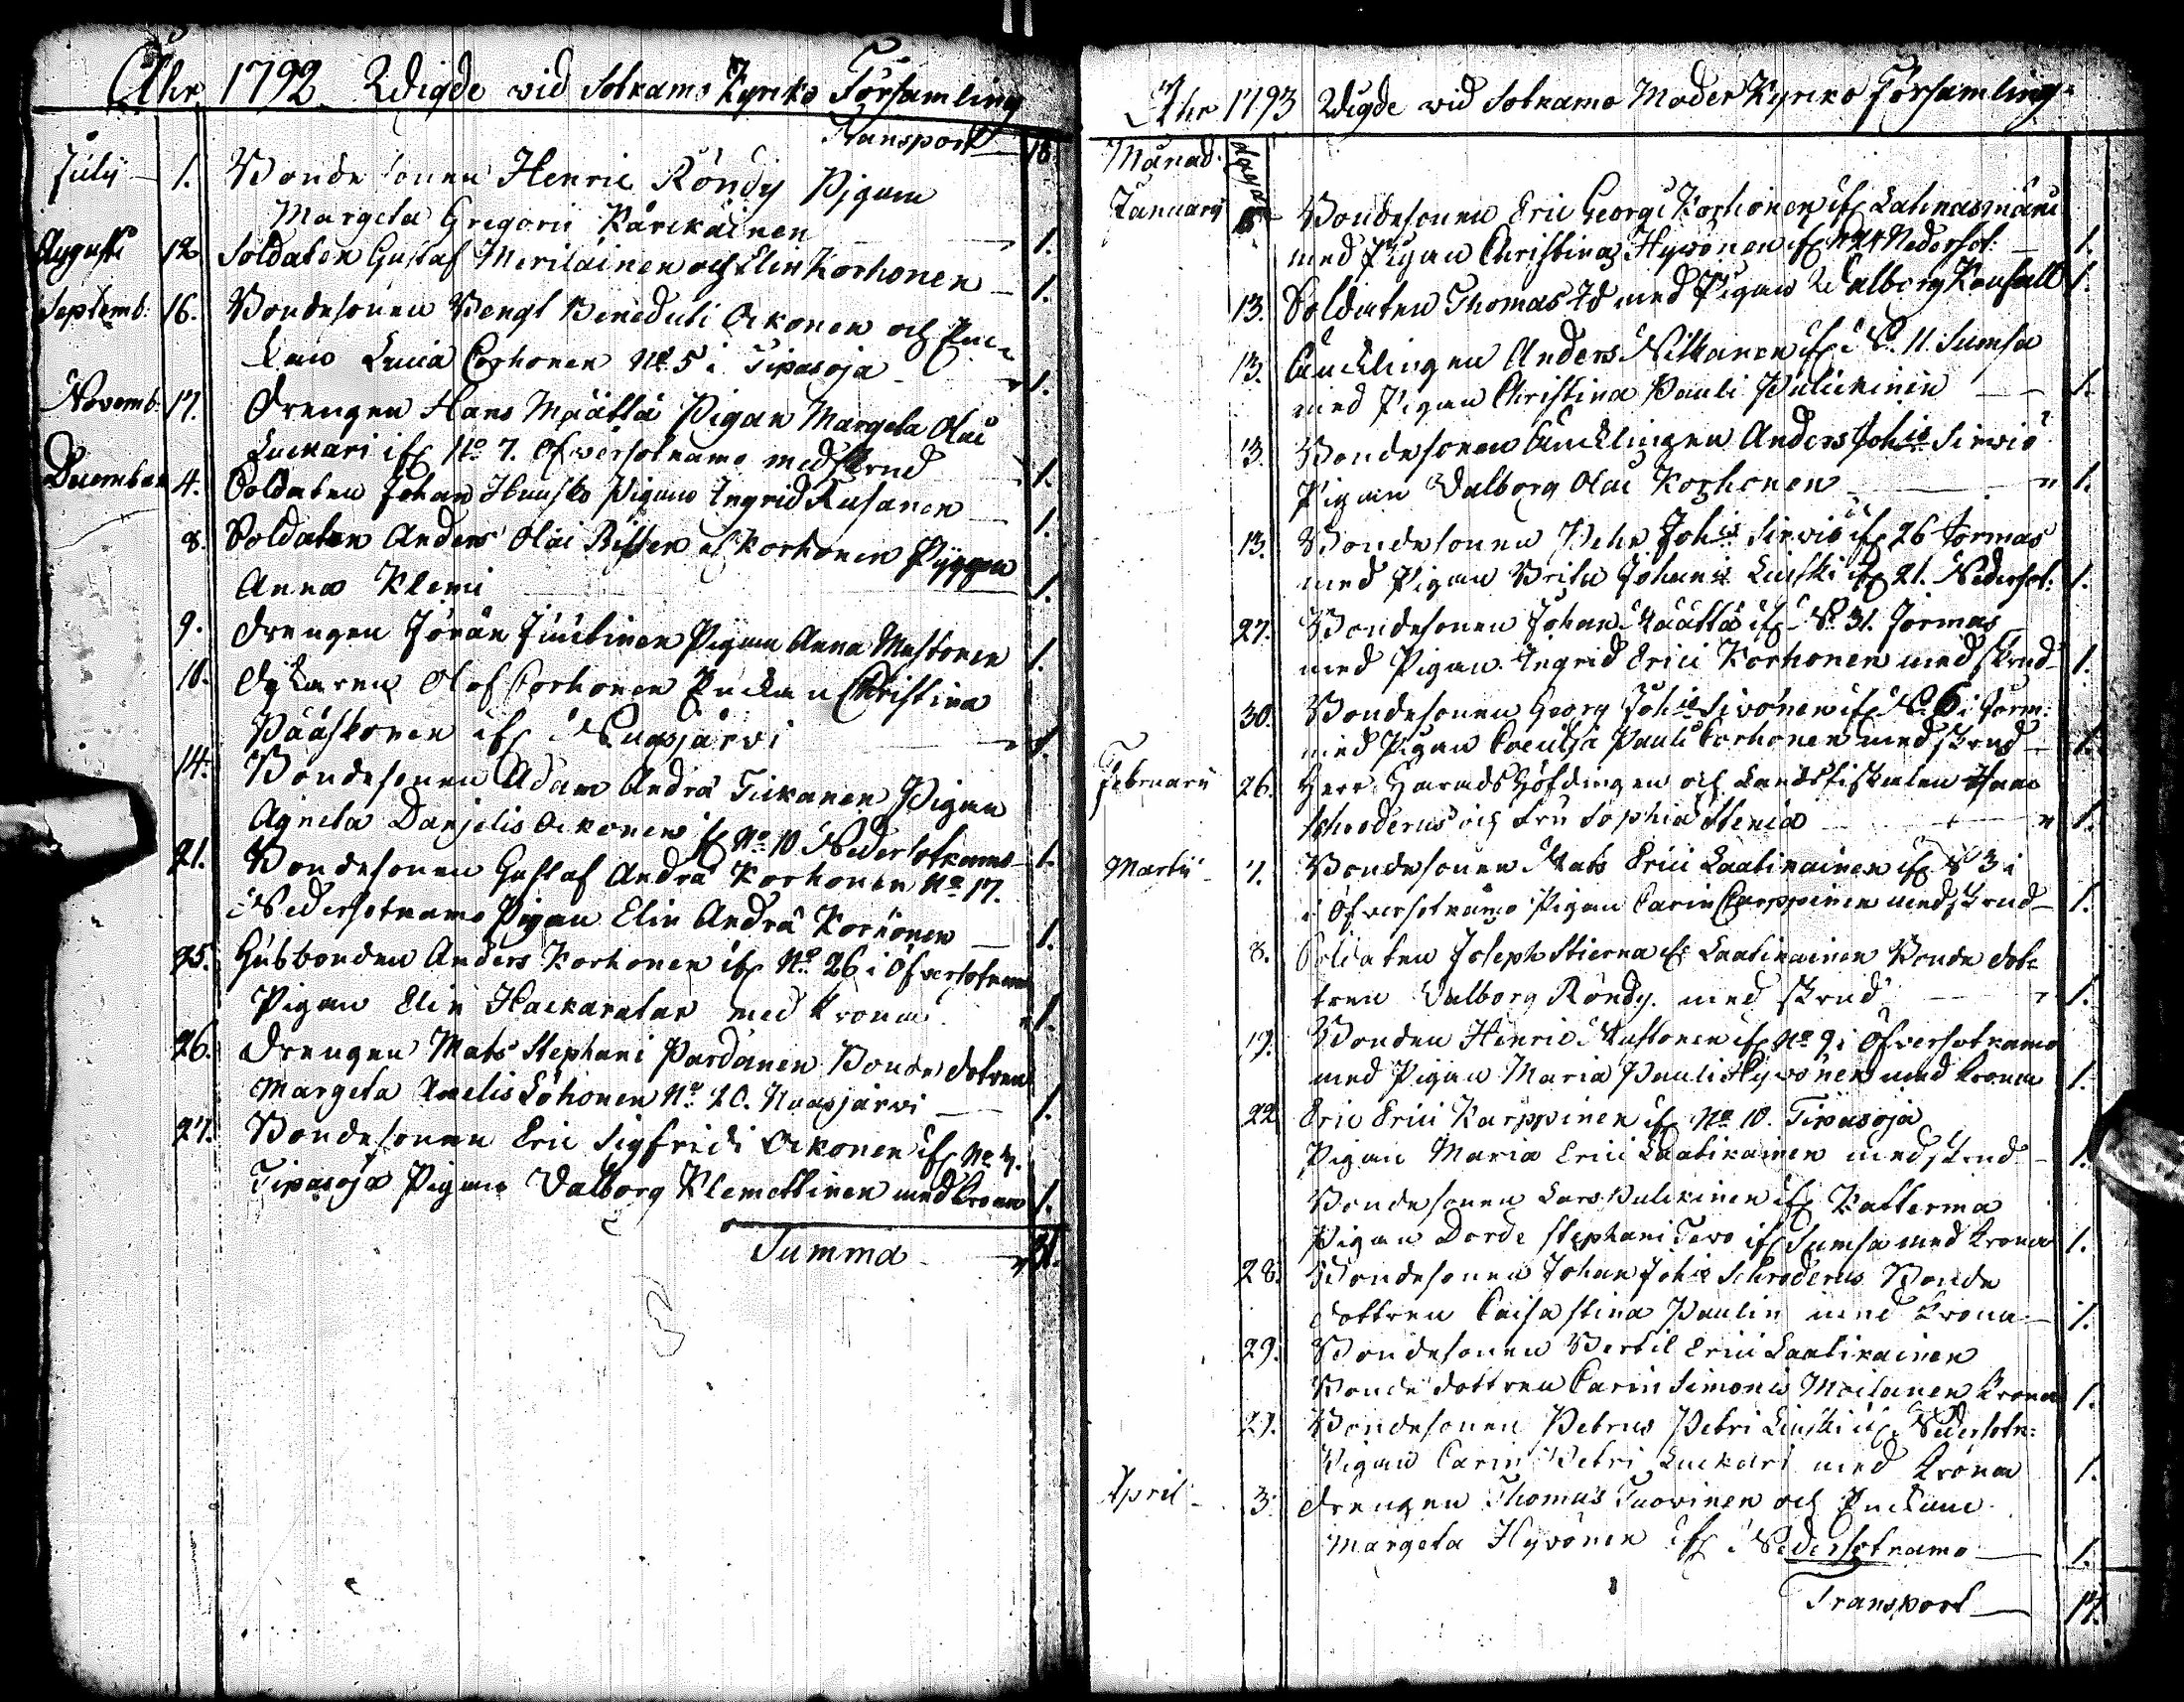 Åhr 1792 Wigde wid Sotkamo Kyrko Församling
Transport 18.
July 1. Bondesonen Henric Röndy Pigan
Margeta Gregorii Kärckäinen 1.
Augusti 12 Soldaten Gustaf Meriläinen och Elin Korhonen 1.
Septemb: 16. Bondesonen Bengt Benedicti Ockonen och
Lucia Corhonen No 5 i Tipasoja 1.
Novemb: 17. Drengen Hans Määttä Pigan Margeta Olai
Luckari if: No 7. Öfwersotkamo med skrud 1.
December 4. Soldaten Johan Pigan Ingrid Rusanen 1.
8. Soldaten Anders Olai Korhonen Pigan
Anna Klemi 1.
9. Drengen Jöran Juntinen Pigan Anna Mustonen 1.
10. Olof Corhonen Enckan Christina
Pääskönen if: Nuasjärvi 1.
14. Bondesonen Adam Andrae Tickanen Pigan
Agneta Danielis Ockonen if: No 10 Nedersotkamo 1.
21. Bondesonen Gustaf Andrae Korhonen No 17.
i Nedersotkamo Pigan Elin Andrae Korhonen 1.
25. Husbonden Anders Korhonen if: No 26 i Öfversotkamo
Pigan Elin Hackaratar med Krona 1.
26. Drengen Mats Stephani Pardanen Bonde dotren
Margeta Löhonen No 20. Nuasjärvi 1.
27. Bondesonen Eric Sigfridi Ockonen if: No 4.
Tipasoja Pigan Valborg Klemettinen med Krona 1.
Summa 31.
Åhr 1793 Wigde wid Sotkamo Moder Kyrko Församling
Månad dagar
January 6 Bondesonen Eric Georgi Korhonen if: Latinasmäki
med Pigan Christina Hyvönen if: No 24 Nedersot: 1.
13. Soldaten Thomas Id med Pigan Walborg 1.
13. Ynklingen Anders Nitkanen if: No 11 Sumsa
med Pigan Christina Pauli Pulckinen 1.
13. Bondesonen Ynklingen Anders Johis Sirviö
Pigan Valborg Olai Korhonen 1.
13. Bondesonen Pehr Johis Sirviö if: 26 Jormas
med Pigan Brita Johanis if: 21. Nedersot: 1.
27. Bondesonen Johan Määttä if: No 31. Jormas
med Pigan Ingrid Erici Korhonen med skrud 1.
30. Bondesonen Georg Johis Sivonen if: No 6 i Jorm:
med Pigan Caecilia Pauli Corhonen med skrud 1.
February 26. Herr Häradshöfdingen och Landsfiskalen Isaac
Schroderus och Fru Sophia Stenia 1.
Martii 7. Bondesonen Mats Erici Laatikainen if: No 3 i
i Öfversotkamo Pigan Carin Carppinen med skrud 1.
8. Soldaten Joseph Stierna if: Laatikainen Bonde dot-
tren Valborg Röndy med skrud 1.
19. Bonden Henric Mustonen if: No 9 i Öfversotkamo
med Pigan Maria Pauli Hyvönen med Krona 1.
22 Eric Erici Karppinen if: No 10. Tipasoja
Pigan Maria Erici Laatikainen med skrud 1.
Bondesonen Lars Pulckinen if: Katterma
Pigan Dorde Stephani Tervo if: Sumsa med Krona 1.
28. Bondesonen Johan Johis Schroderus Bonde
dottren Caisa Stina Paulin med Krona 1.
29. Bondesonen Bertil Erici Laatikainen
Bonde dottren Carin Simonis Moilanen Krona 1.
29. Bondesonen Petrus Petri if: Nedersotk:
Pigan Carin Petri Luckari med Krona 1.
April 3. Drengen Thomas Tuovinen och Enckan
Margeta Hyvönen if: Nedersotkamo 1.
Transport 17.